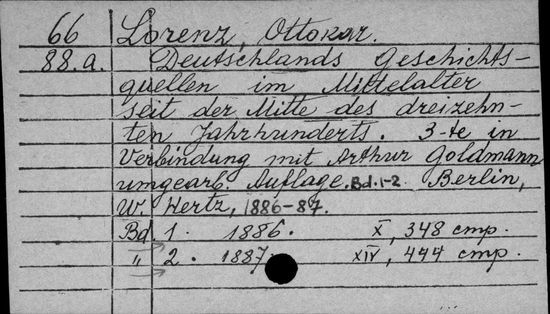 66 Lorenz, Ottokar.
88.a. Deutschlands Geschichts-
quellen im Mittelalter
seit der Mitte des dreizehn-
ten Jahrhunderts. 3-te in
Verbindung mit Arthur Goldmann
umgearb. Auflage. Bd.1-2. Berlin,
W. Hertz, 1886-87.
Bd. 1. 1886. X, 348 стр.
" 2. 1887. XIV, 444 стр.